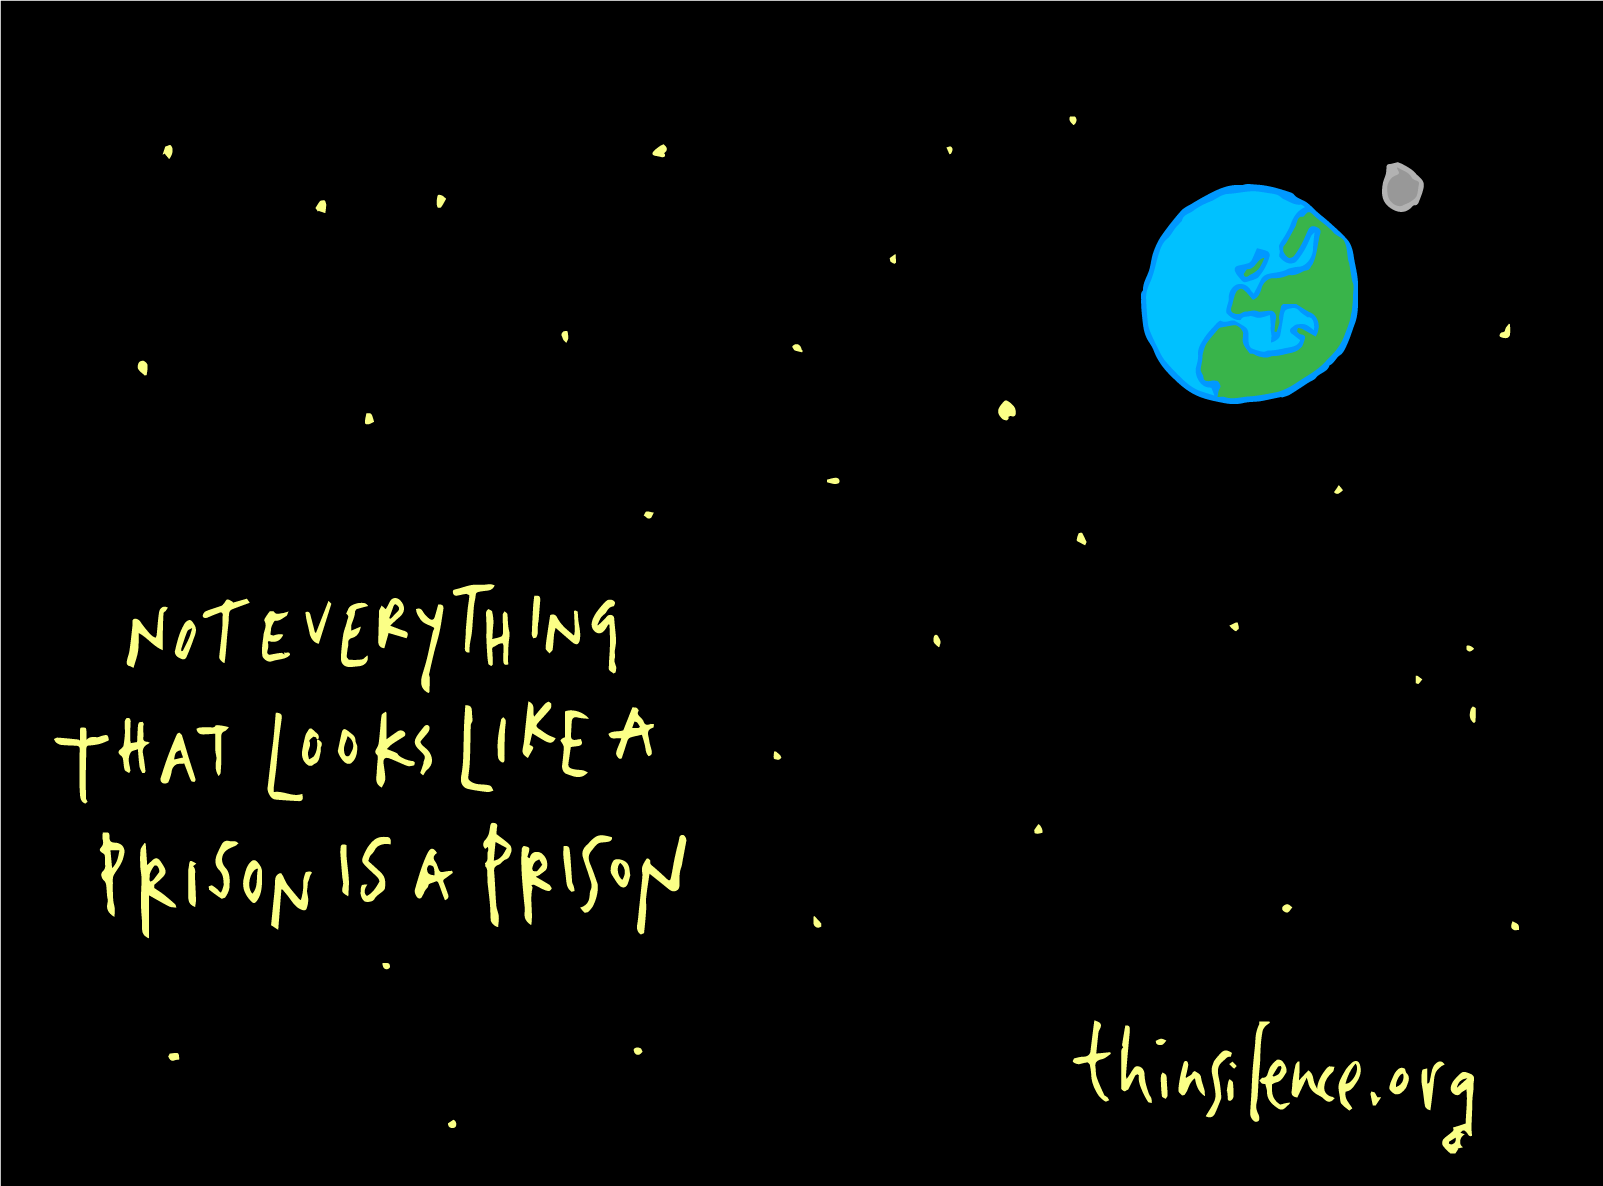 NOT EVERYTHING
THAT LOOKS LIKE A
PRISON IS A PRISON
thinsilence.org